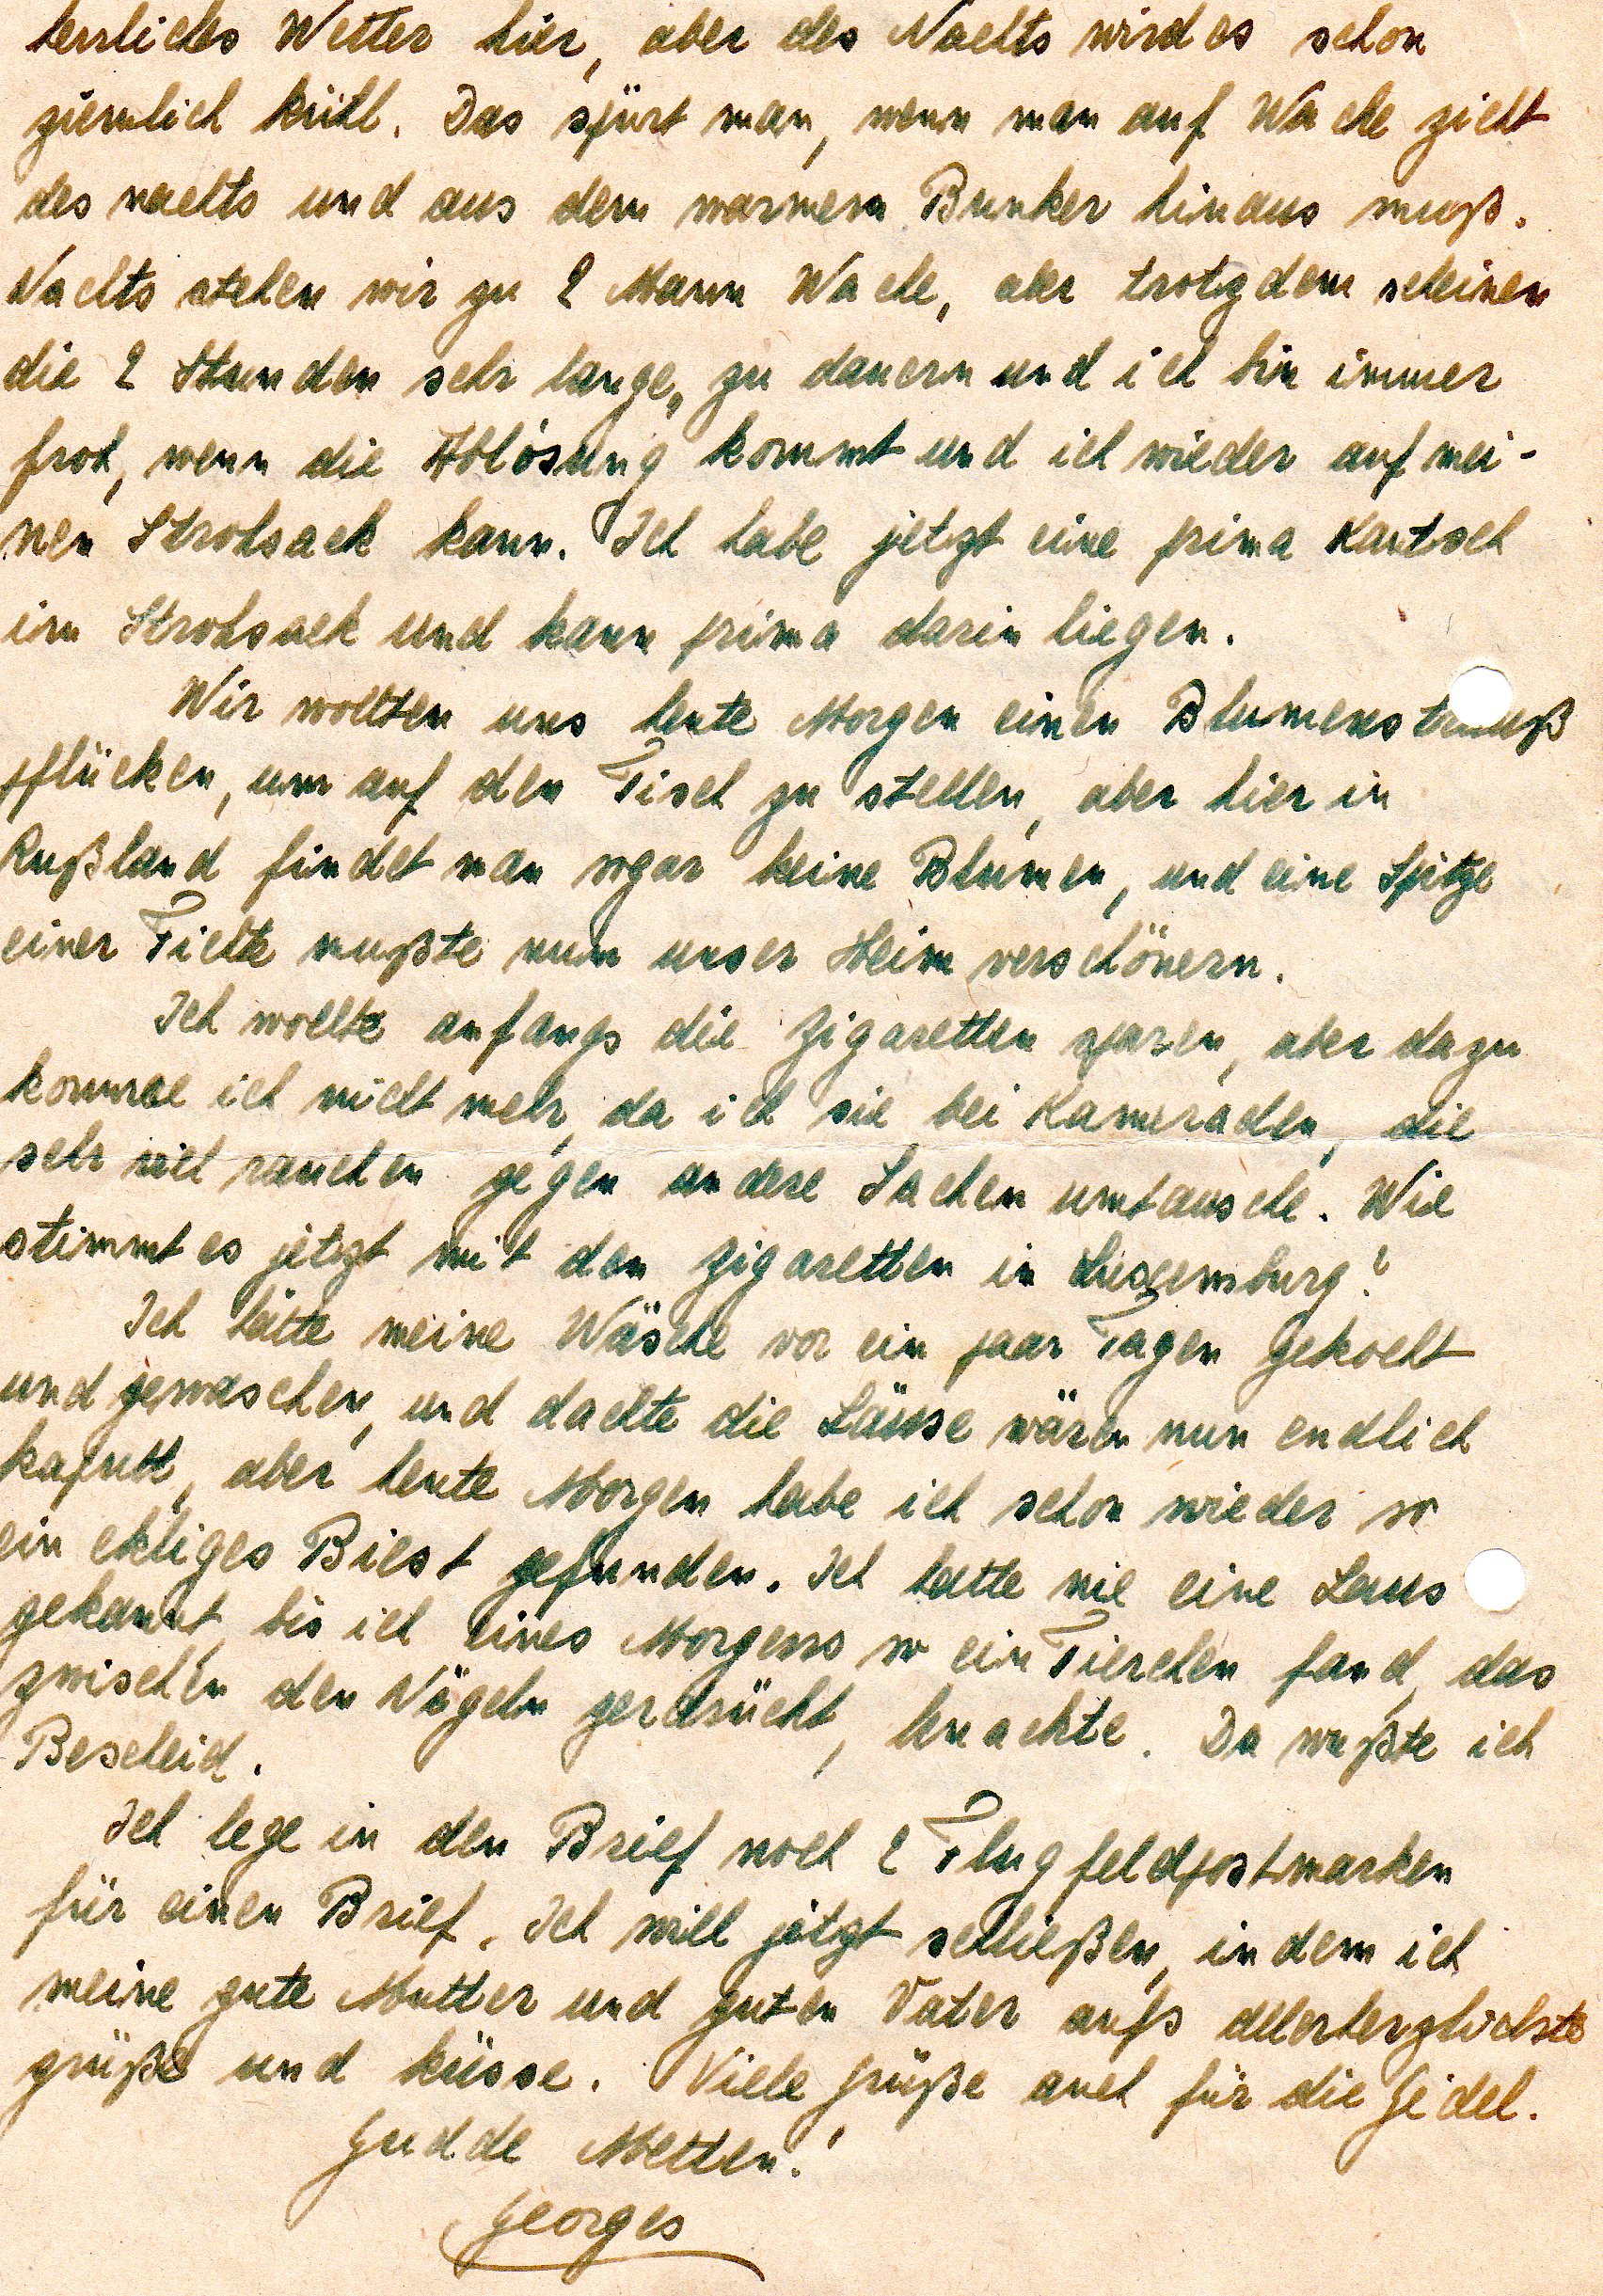 herrliches Wetter hier, aber des Nachts wird es schon
ziemlich kühl. Das spürt man, wenn man auf Wache zieht
des nachts und aus dem warmem Bunker hinaus muß.
Nachts stehen wir zu 2 Mann Wache, aber trotzdem scheinen
die 2 Stunden sehr lange, zu dauern und ich bin immer
froh, wenn die Ablösung kommt und ich wieder auf mei-
nen Strohsack kann. Ich habe jetzt eine prima Kautsch
im Strohsack und kann prima darin liegen.
Wir wollten uns heute Morgen einen Blumenstrauß
pflücken, um auf den Tisch zu stellen, aber hier in
Rußland findet man sogar keine Blumen, und eine Spitze
einer Fichte mußte nun unser Heim verschönern.
Ich wollte anfangs die Zigaretten sparen, aber dazu
komme ich nicht mehr, da ich sie bei Kameraden, die
sehr viel rauchen gegen andere Sachen umtausche. Wie
stimmt es jetzt mit den Zigaretten in Luxemburg?
Ich hätte meine Wäsche vor ein paar Tagen gekocht
und gewaschen, und dachte die Läuse wären nun endlich
kaputt, aber heute Morgen habe ich schon wieder so
ein ekliges Biest gefunden. Ich hatte nie eine Laus
gekannt, bis ich eines Morgens so ein Tierchen fand, das
zwischen den Nägeln zerdrückt, knackte. Da wußte ich
Bescheid.
Ich lege in den Brief noch 2 Flugfeldpostmarken
für einen Brief. Ich will jetzt schließen, indem ich
meine gute Mutter und guten Vater aufs allerherzlichste
grüße und küsse. Viele Grüße auch für die Gidel.
Gudde Metten!
Georges